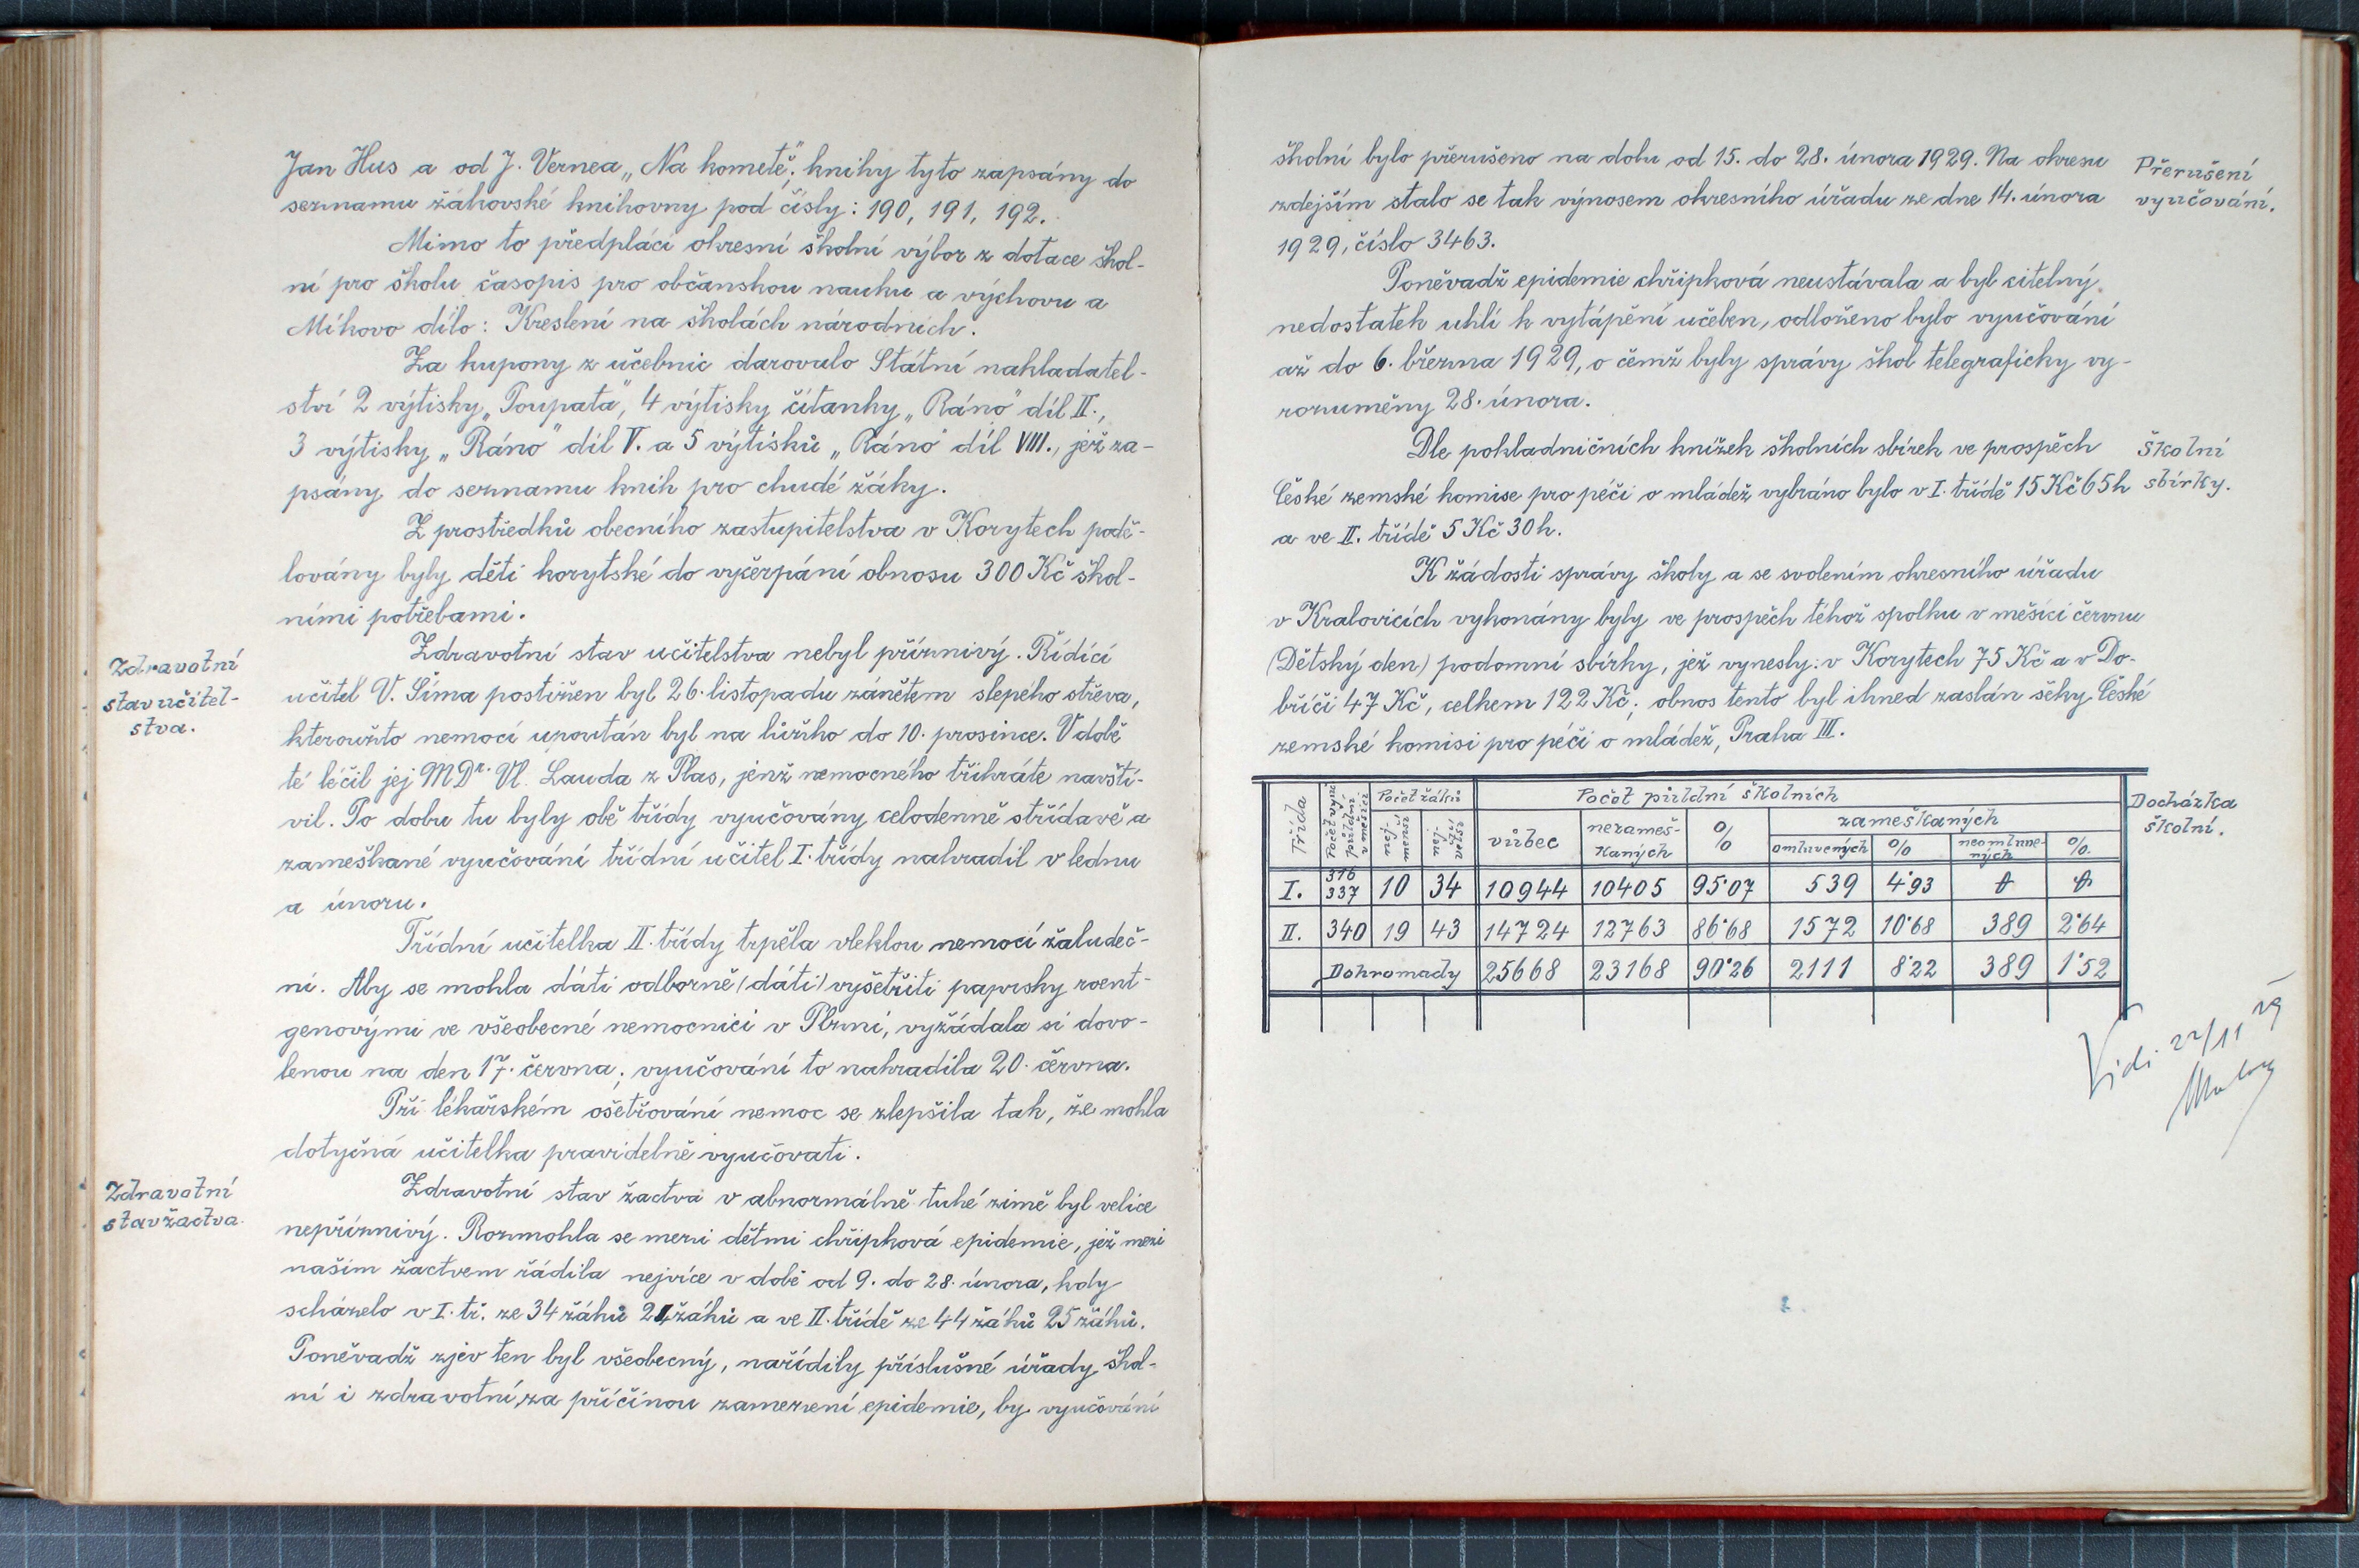 Jan Hus a od J. Vernea „Na kometě“; knihy tyto zapsány do
seznamu žákovské knihovny pod čísly: 190, 191, 192.
Mimo to předplácí okresní školní výbor z dotace škol-
ní pro školu časopis pro občanskou nauku a výchovu a
Míkovo dílo: Kreslení na školách národních.
Za kupony z učebnic darovalo Státní nakladatel-
ství 2 výtisky „Poupata“, 4 výtisky čítanky „Ráno“ díl II.,
3 výtisky „Ráno“ díl V. a 5 výtisků „Ráno“ díl VIII., jež za-
psány do seznamu knih pro chudé žáky.
Z prostředků obecního zastupitelstva v Korytech podě-
lovány byly děti korytské do vyčerpání obnosu 300 Kč škol-
ními potřebami.
Zdravotní
stav učitel-
stva.
Zdravotní stav učitelstva nebyl příznivý. Řídící
učitel V. Šíma postižen byl 26. listopadu zánětem slepého střeva,
kteroužto nemocí upoután byl na lůžko do 10. prosince. V době
té léčil jej MDr. Vl. Lauda z Plas, jenž nemocného třikráte navští-
vil. Po dobu tu byly obě třídy vyučovány celodenně střídavě a
zameškané vyučování třídní učitel I. třídy nahradil v lednu
a únoru.
Třídní učitelka II. třídy trpěla vleklou nemocí žaludeč-
ní. Aby se mohla dáti odborně (dáti) vyšetřiti paprsky roent-
genovými ve všeobecné nemocnici v Plzni, vyžádala si dovo-
lenou na den 17. června; vyučování to nahradila 20. června.
Při lékařském ošetřování nemoc se zlepšila tak, že mohla
dotyčná učitelka pravidelně vyučovati.
Zdravotní
stav žactva.
Zdravotní stav žactva v abnormálně tuhé zimě byl velice
nepříznivý. Rozmohla se mezi dětmi chřipková epidemie, jež mezi
našim žactvem řádila nejvíce v době od 9. do 28. února, kdy
scházelo v I. tř. ze 34 žáků 21 žáků a ve II. třídě ze 44 žáků 25 žáků.
Poněvadž zjev ten byl všeobecný, nařídily příslušné úřady škol-
ní i zdravotní, za příčinou zamezení epidemie, by vyučování
školní bylo přerušeno na dobu od 15. do 28. února 1929. Na okresu
zdejším stalo se tak výnosem okresního úřadu ze dne 14. února
1929, číslo 3463.
Přerušení
vyučování.
Poněvadž epidemie chřipková neustávala a byl citelný
nedostatek uhlí k vytápění učeben, odloženo bylo vyučování
až do 6. března 1929, o čemž byly správy škol telegraficky vy-
rozuměny 28. února.
Dle pokladničních knížek školních sbírek ve prospěch
České zemské komise pro péči o mládež vybráno bylo v I. třídě 15 Kč 65 h
a ve II. třídě 5 Kč 30 h.
Školní
sbírky.
K žádosti správy školy a se svolením okresního úřadu
v Kralovicích vykonány byly ve prospěch téhož spolku v měsíci červnu
(Dětský den) podomní sbírky, jež vynesly: v Korytech 75 Kč a v Do-
bříči 47 Kč, celkem 122 Kč; obnos tento byl ihned zaslán šeky České
zemské komisi pro péči o mládež, Praha III.
Docházka
školní.
Třída Počet žáků Počet půldní školních
nej-menší nej-větší vůbec nezameš-kaných % zameškaných
omluvených % neomluve-ných %
I. 316 337 10 34 10944 10405 95·07 539 4·93
II. 340 19 43 14724 12763 86·68 1572 10·68 389 2·64
Dohromady 25668 23168 90·26 2111 8·22 389 1·52
Vidi. 22/11 29